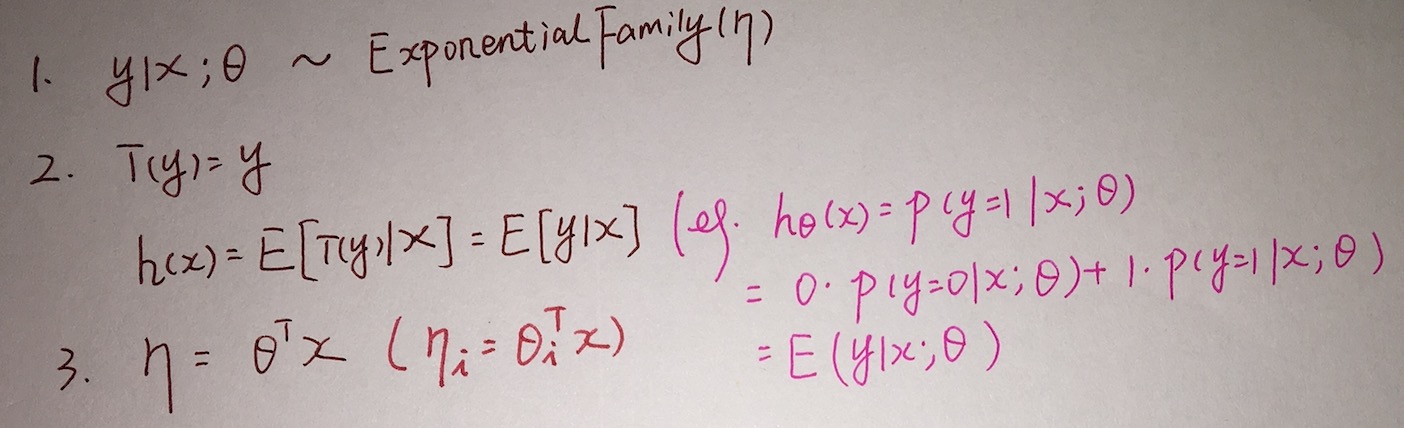 1. y|x;θ ~ Exponential Family(η)
2. T(y)=y
h(x)=E[T(y)|x]=E[y|x] (eg. hθ(x)=P(y=1|x;θ)
= 0·P(y=0|x;θ)+1·P(y=1|x;θ)
3. η = θᵀx (ηᵢ=θᵢᵀx)
=E(y|x;θ)